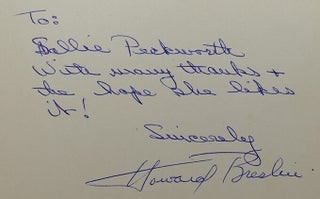 To:
Sallie Peckworth
With many thanks +
the hope she likes
it!
Sincerely
Howard Breslin